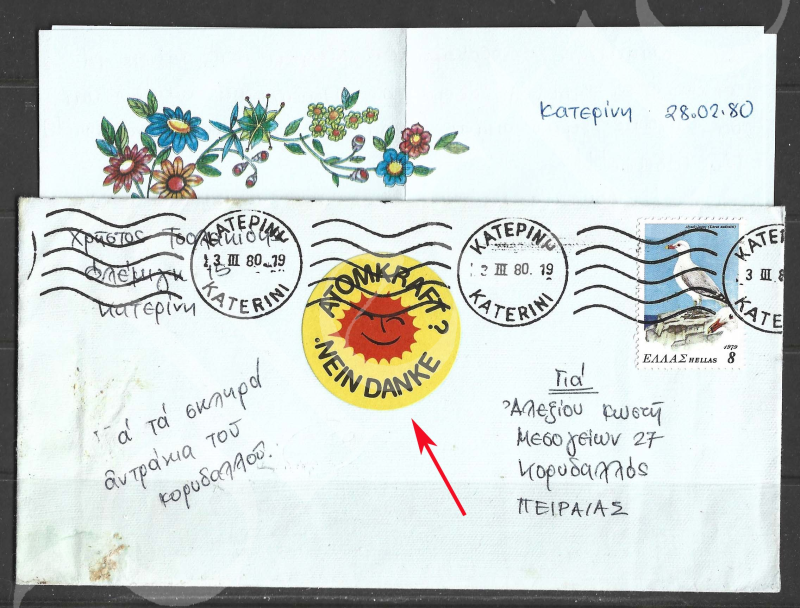 Κατερίνη 28.02.80
ΚΑΤΕΡΙΝΗ
3 III 80.19
KATERINI
ΚΑΤΕΡΙΝΗ
3 III 80. 19
KATERINI
ΚΑΤΕΡΙ
3 III 8
KATE
Χρήστος
Φλέμιγκ 15
Κατερίνη
ATOMKRAFT?
NEIN DANKE.
1979
ΕΛΛΑΣ HELLAS 8
Γιά
Αλεξίου Κωστή
Μεσογείων 27
Κορυδαλλός
ΠΕΙΡΑΙΑΣ
Γιά τά σκληρά
αντράκια του
κορυδαλλού.